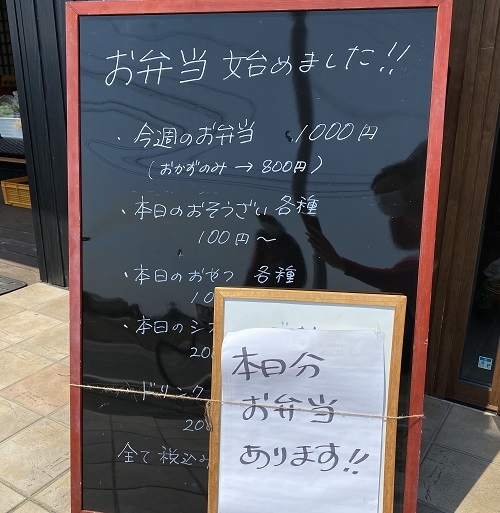 お弁当 始めました!!
・今週のお弁当 1000円
(おかずのみ → 800円)
・本日のおそうざい 各種
100円〜
・本日のおやつ 各種
10
・本日のシ
20
ドリンク
20
全て税込み
本日分
お弁当
あります!!